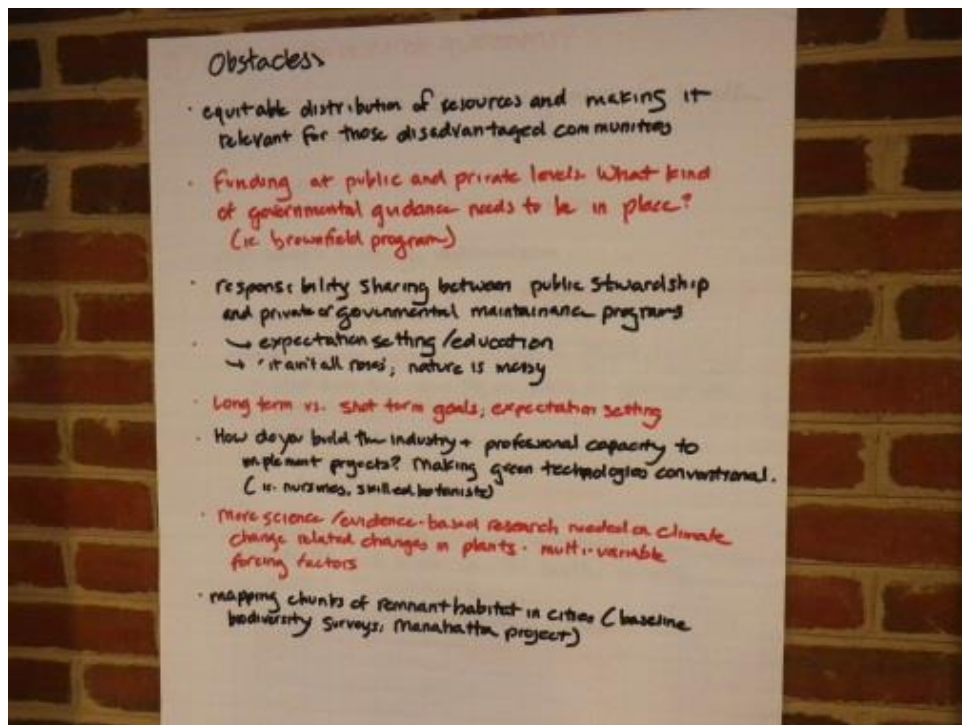 Obstacles
· equitable distribution of resources and making it
relevant for those disadvantaged communities
· Funding at public and private levels. What kind
of governmental guidance needs to be in place?
(ie brownfield program)
· responsibility sharing between public stewardship
and private or governmental maintainance programs
→ expectation setting/education
→ "it ain't all roses", nature is messy
· Long term vs. short term goals, expectation setting
· How do you build the industry + professional capacity to
implement projects? Making green technologies conventional.
(ie. nurseries, skilled botanists)
· more science/evidence-based research needed on climate
change related changes in plants - multi-variable
forcing factors
· mapping chunks of remnant habitat in cities (baseline
biodiversity surveys, Manahatta project)